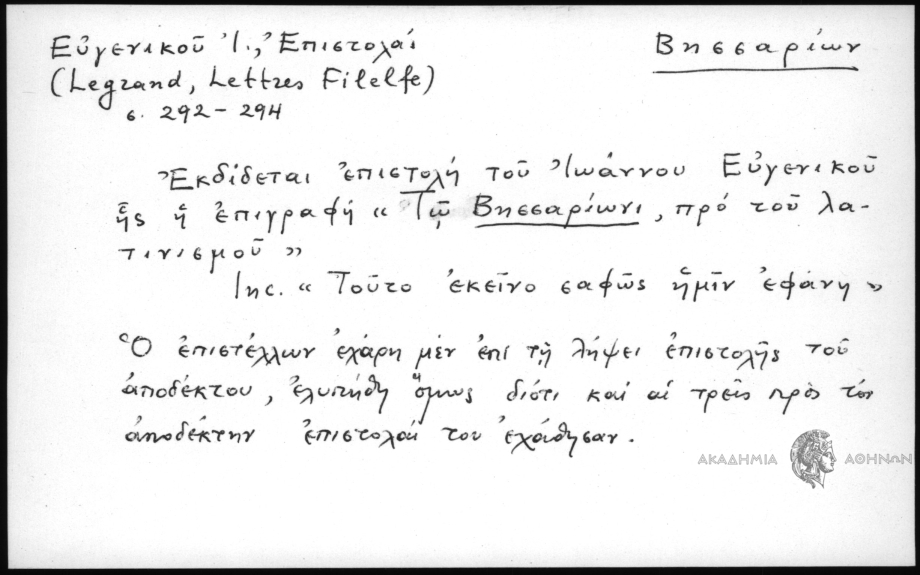 Εὐγενικοῦ Ἰ., Ἐπιστολαί
Βησσαρίων
(Legrand, Lettres Filelfe)
σ. 292 - 294
Ἐκδίδεται ἐπιστολή τοῦ Ἰωάννου Εὐγενικοῦ
ἧς ἡ ἐπιγραφή « Τῷ Βησσαρίωνι, πρό τοῦ λα-
τινισμοῦ »
Inc. « Τοῦτο ἐκεῖνο σαφῶς ἡμῖν ἐφάνη »
Ὁ ἐπιστέλλων ἐχάρη μέν ἐπι τῇ λήψει ἐπιστολῆς τοῦ
ἀποδέκτου, ἐλυπήθη ὅμως διότι καί αἱ τρεῖς πρὸς τόν
ἀποδέκτην ἐπιστολαί του ἐχάθησαν.
ΑΚΑΔΗΜΙΑ ΑΘΗΝΩΝ